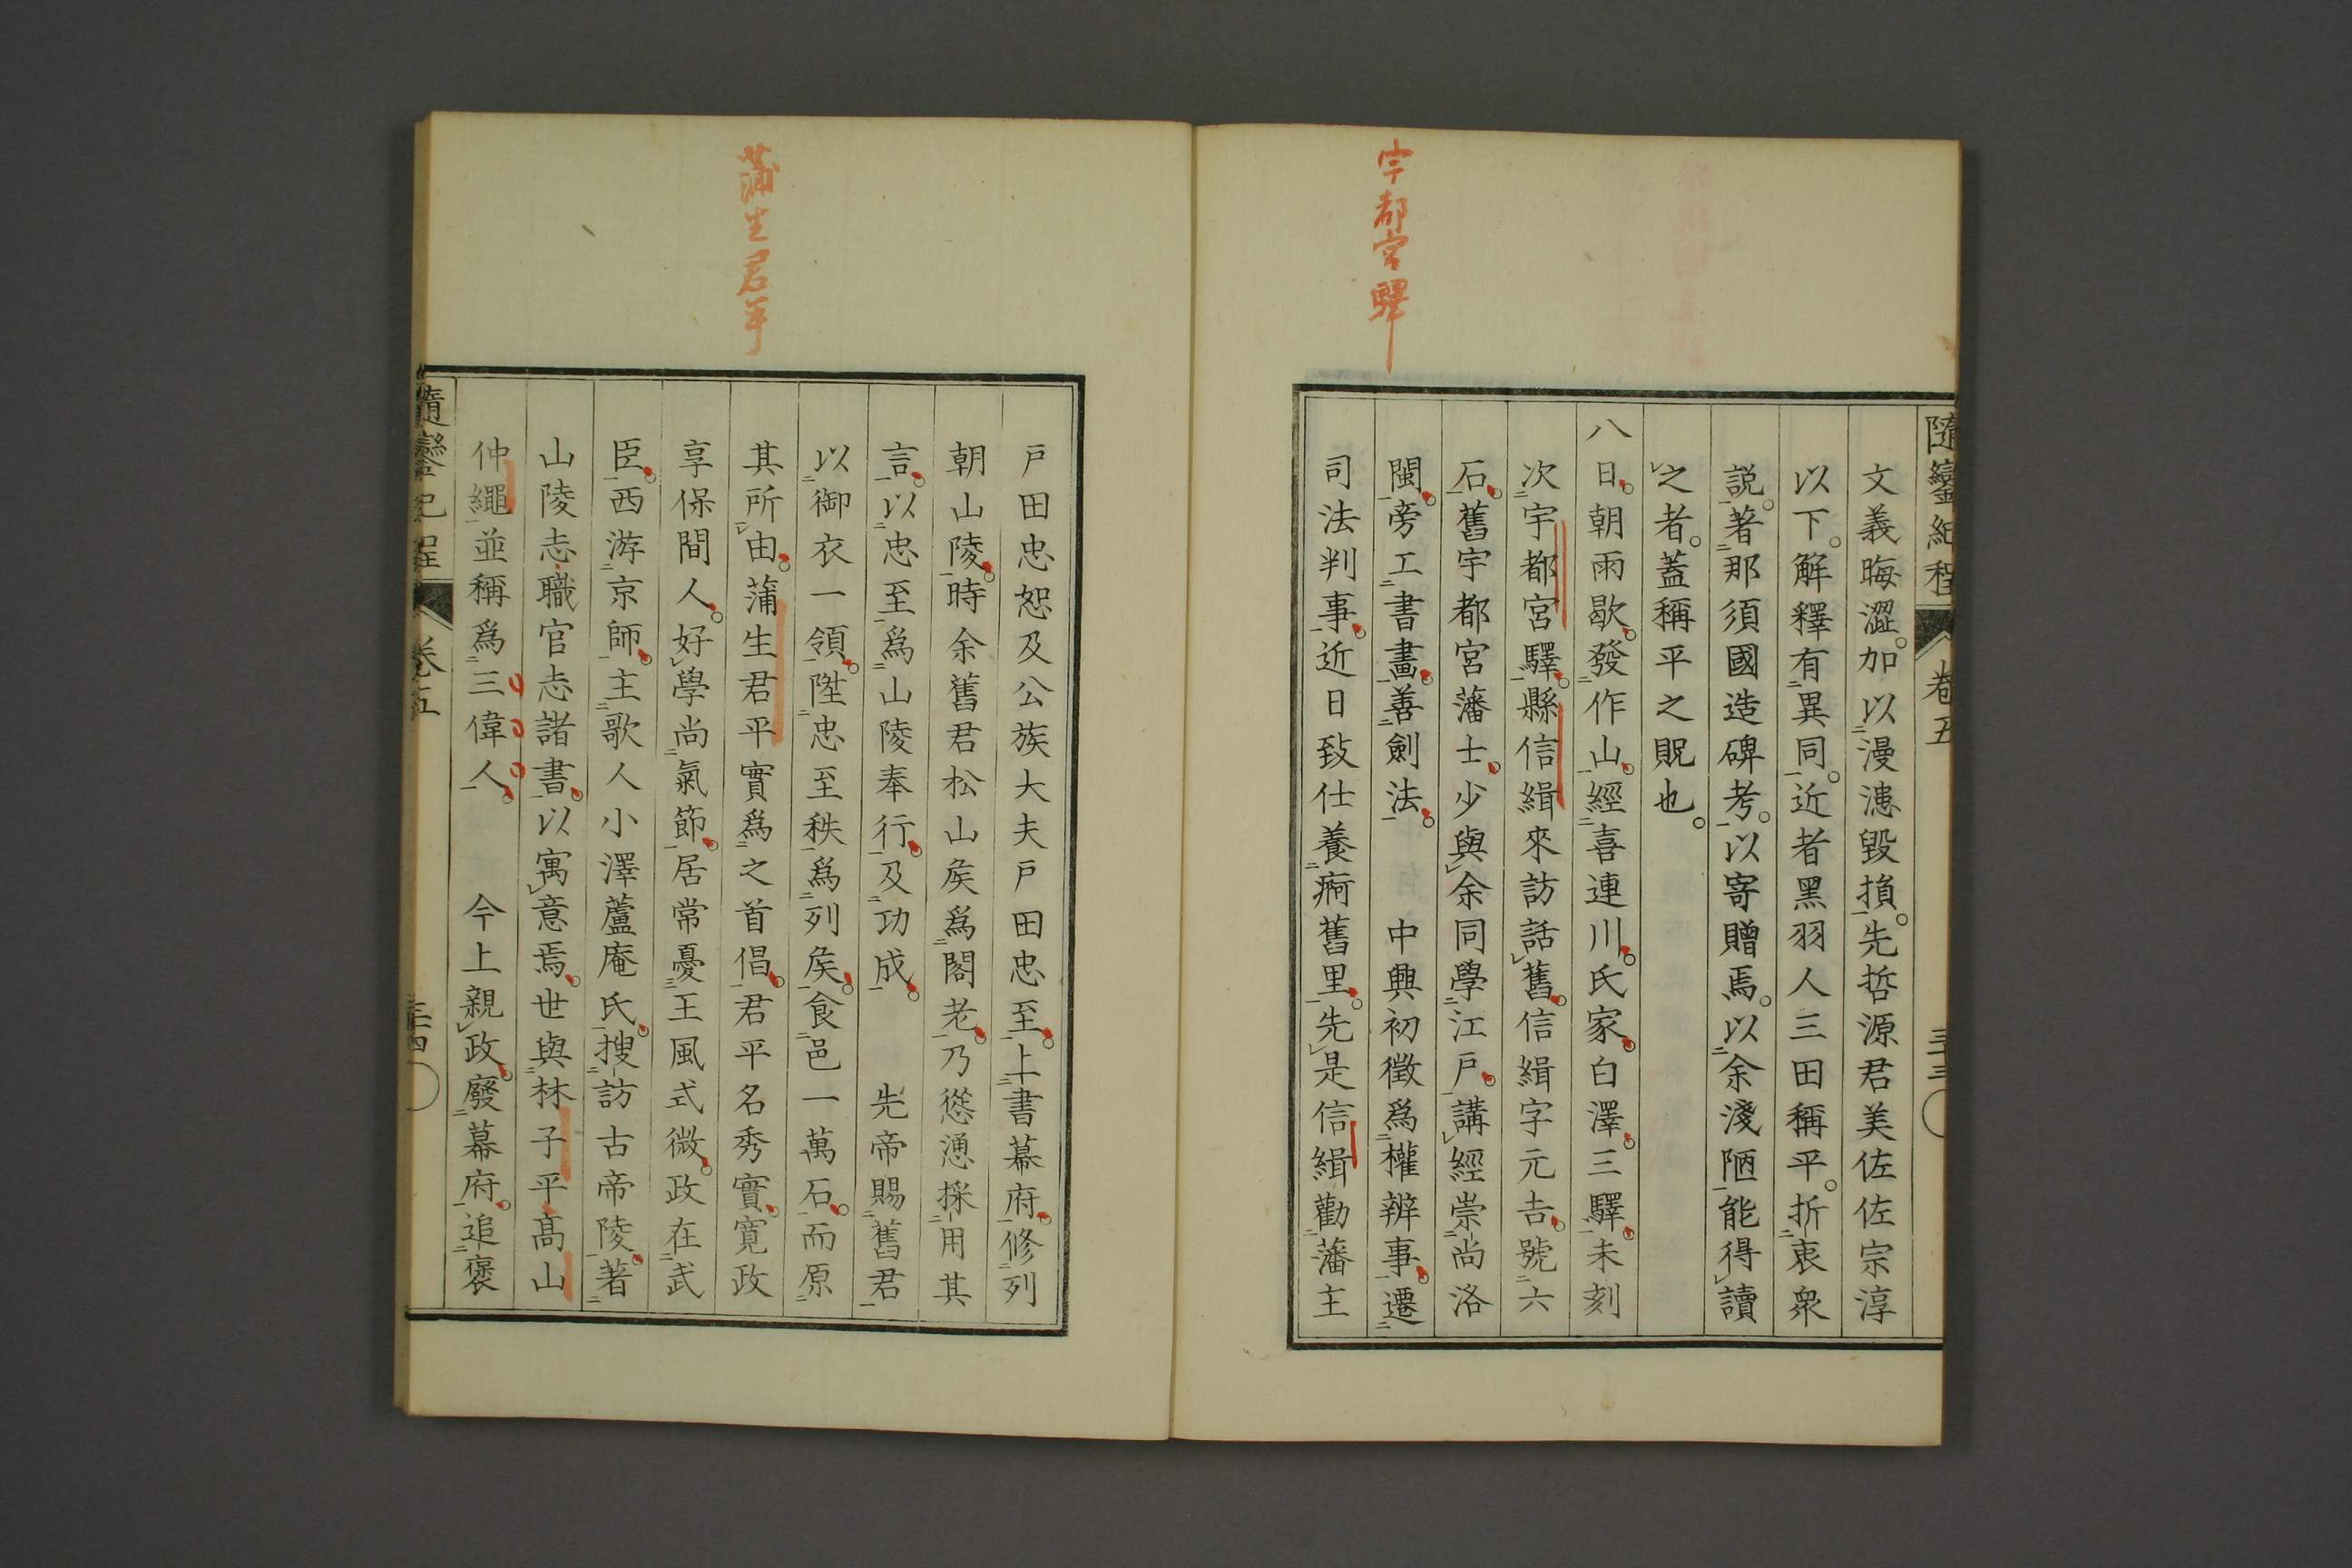 宇都宮驛
隨鑾紀程 卷五 三十三
文義晦澀。加以漫漶毀損。先哲源君美佐佐宗淳
以下。解釋有異同。近者黑羽人三田稱平。折衷衆
説。著那須國造碑考。以寄贈焉。以余淺陋能得讀
之者。蓋稱平之貺也。
八日。朝雨歇。發作山。經喜連川。氏家。白澤。三驛。未刻
次宇都宮驛。縣信緝來訪話舊。信緝字元吉。號六
石。舊宇都宮藩士。少與余同學江戸。講經崇尚洛
閩。旁工書畫。善劍法。 中興初徵爲權辨事。遷
司法判事。近日致仕養痾舊里。先是信緝勸藩主
蒲生君平
戸田忠恕及公族大夫戸田忠至。上書幕府。修列
朝山陵。時余舊君松山矦爲閣老。乃慫慂採用其
言。以忠至爲山陵奉行。及功成。 先帝賜舊君
以御衣一領。陞忠至秩爲列矦。食邑一萬石。而原
其所由。蒲生君平實爲之首倡。君平名秀實。寬政
享保間人。好學尚氣節。居常憂王風式微。政在武
臣。西游京師。主歌人小澤蘆庵氏。搜訪古帝陵。著
山陵志職官志諸書。以寓意焉。世與林子平高山
仲繩並稱爲三偉人。 今上親政。廢幕府。追褒
隨鑾紀程 卷五 三十四